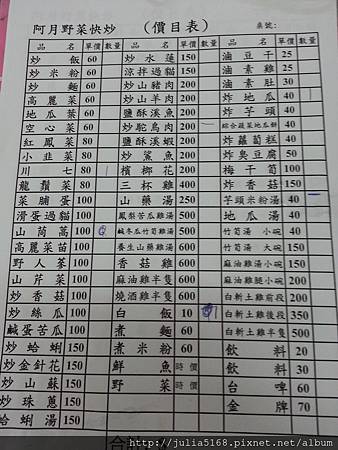 阿月野菜快炒 （價目表） 桌號：
品名 單價 數量 品名 單價 數量 品名 單價 數量
炒飯 60 炒水蓮 150 滷豆干 25
炒米粉 60 涼拌過貓 150 滷素雞 25
炒麵 60 炒山豬肉 200 滷素肚 30
高麗菜 80 炒山羊肉 200 炸地瓜 40
地瓜葉 80 鹽酥溪魚 200 炸芋頭 40
空心菜 80 炒鴕鳥肉 200 綜合蔬菜地瓜餅 40
紅鳳菜 80 鹽酥溪蝦 200 炸蘿蔔糕 40
小韭菜 80 炒鯊魚 200 炸臭豆腐 50
川七 80 檳榔花 200 梅干筍 100
龍鬚菜 80 三杯雞 400 炸香菇 150
菜脯蛋 100 山藥湯 250 芋頭米粉湯 40
滑蛋過貓 100 鳳梨苦瓜雞湯 500 地瓜湯 40
山茼蒿 100 鹹冬瓜竹筍雞湯 500 竹筍湯 小碗 40
高麗菜苗 100 養生山藥雞湯 600 竹筍湯 大碗 150
野人茶 100 香菇雞 600 麻油雞湯小碗 150
山芹菜 100 麻油雞半隻 600 麻油雞腿小碗 200
炒香菇 150 燒酒雞半隻 600 白斬土雞前段 200
炒絲瓜 150 白飯 10 白斬土雞後段 350
鹹蛋苦瓜 150 煮麵 60 白斬土雞半隻 500
炒蛤蜊 150 煮米粉 60 飲料 20
炒金針花 150 鮮魚 時價 飲料 30
炒山蘇 150 野菜 時價 台啤 60
炒珠蔥 150 金牌 70
蛤蜊湯 150
http://julia5168.pixnet.net/album